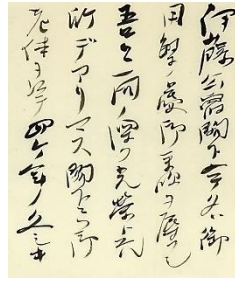 伊藤公爵閣下今夕ハ御
用繁ノ處御来臨ヲ辱フシ
吾々一同ノ深ク光栄トスル
所デアリマス閣下ハ御
老体ヲ以テ四ケ年ノ久シキ